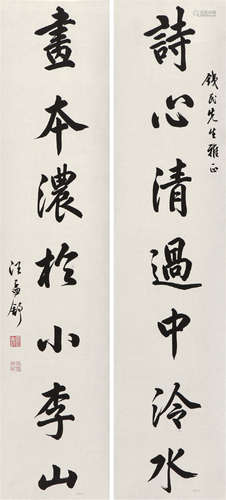 詩心清過中泠水
鐵民先生雅正
畫本濃於小李山
汪孟舒